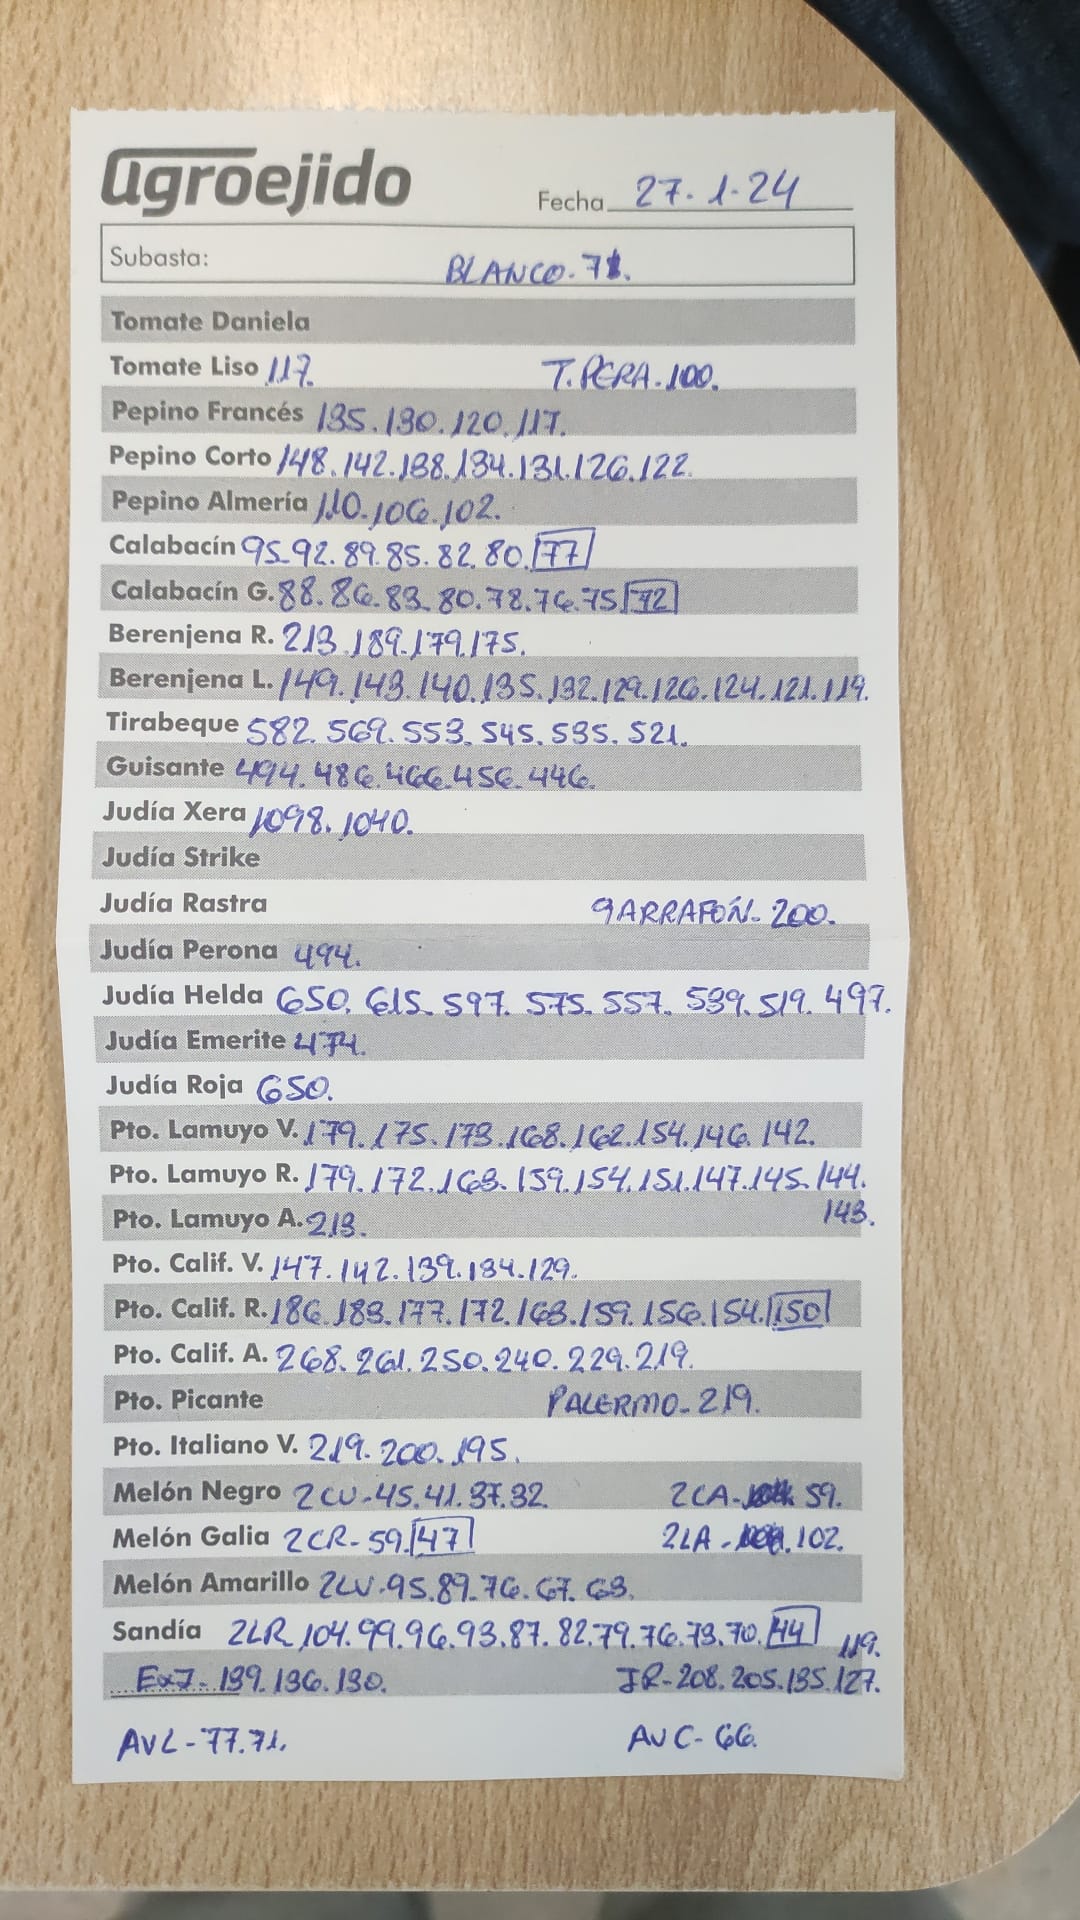 agroejido
Fecha 27.1.24
Subasta: BLANCO.71.
Tomate Daniela
Tomate Liso 117. T.PERA.100.
Pepino Francés 135.130.120.117.
Pepino Corto 148.142.138.134.131.126.122.
Pepino Almería 110.106.102.
Calabacín 95.92.89.85.82.80.77
Calabacín G. 88.86.83.80.78.76.75.72
Berenjena R. 213.189.179.175.
Berenjena L. 149.143.140.135.132.129.126.124.121.119.
Tirabeque 582.569.553.545.535.521.
Guisante 494.486.466.456.446.
Judía Xera 1098.1040.
Judía Strike
Judía Rastra GARRAFÓN-200.
Judía Perona 494.
Judía Helda 650.615.597.575.557.539.519.497.
Judía Emerite 474.
Judía Roja 650.
Pto. Lamuyo V. 179.175.173.168.162.154.146.142.
Pto. Lamuyo R. 179.172.163.159.154.151.147.145.144.
Pto. Lamuyo A. 213. 143.
Pto. Calif. V. 147.142.139.134.129.
Pto. Calif. R. 186.183.177.172.163.159.156.154.150
Pto. Calif. A. 268.261.250.240.229.219.
Pto. Picante PALERMO-219.
Pto. Italiano V. 219.200.195.
Melón Negro 2CV-45.41.37.32. 2CA- 59.
Melón Galia 2CR-59.47 2LA- .102.
Melón Amarillo 2LV-95.89.76.67.63.
Sandía 2LR.104.99.96.93.87.82.79.76.73.70.44 119.
Ex7-139.136.130. JR-208.205.135.127.
AVL-77.71. AVC-66.